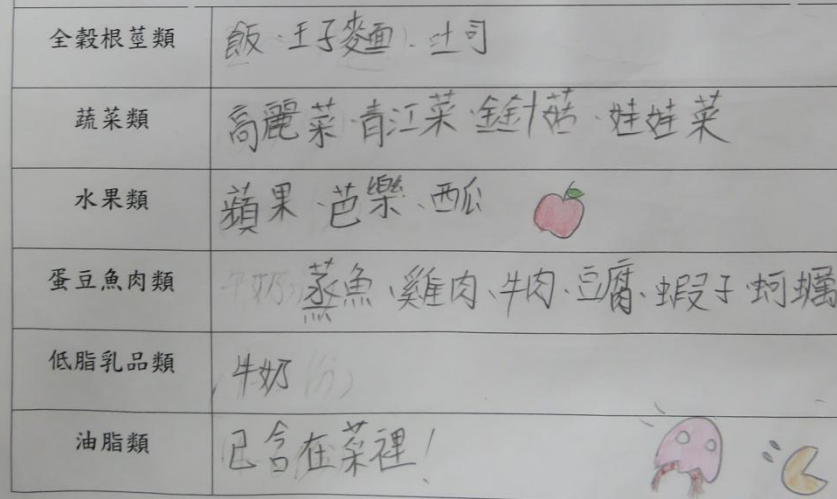 全穀根莖類 飯、王子麵、吐司
蔬菜類 高麗菜、青江菜、金針菇、娃娃菜
水果類 蘋果、芭樂、西瓜
蛋豆魚肉類 蒸魚、雞肉、牛肉、豆腐、蝦子、蚵蠣
低脂乳品類 牛奶
油脂類 已含在菜裡！